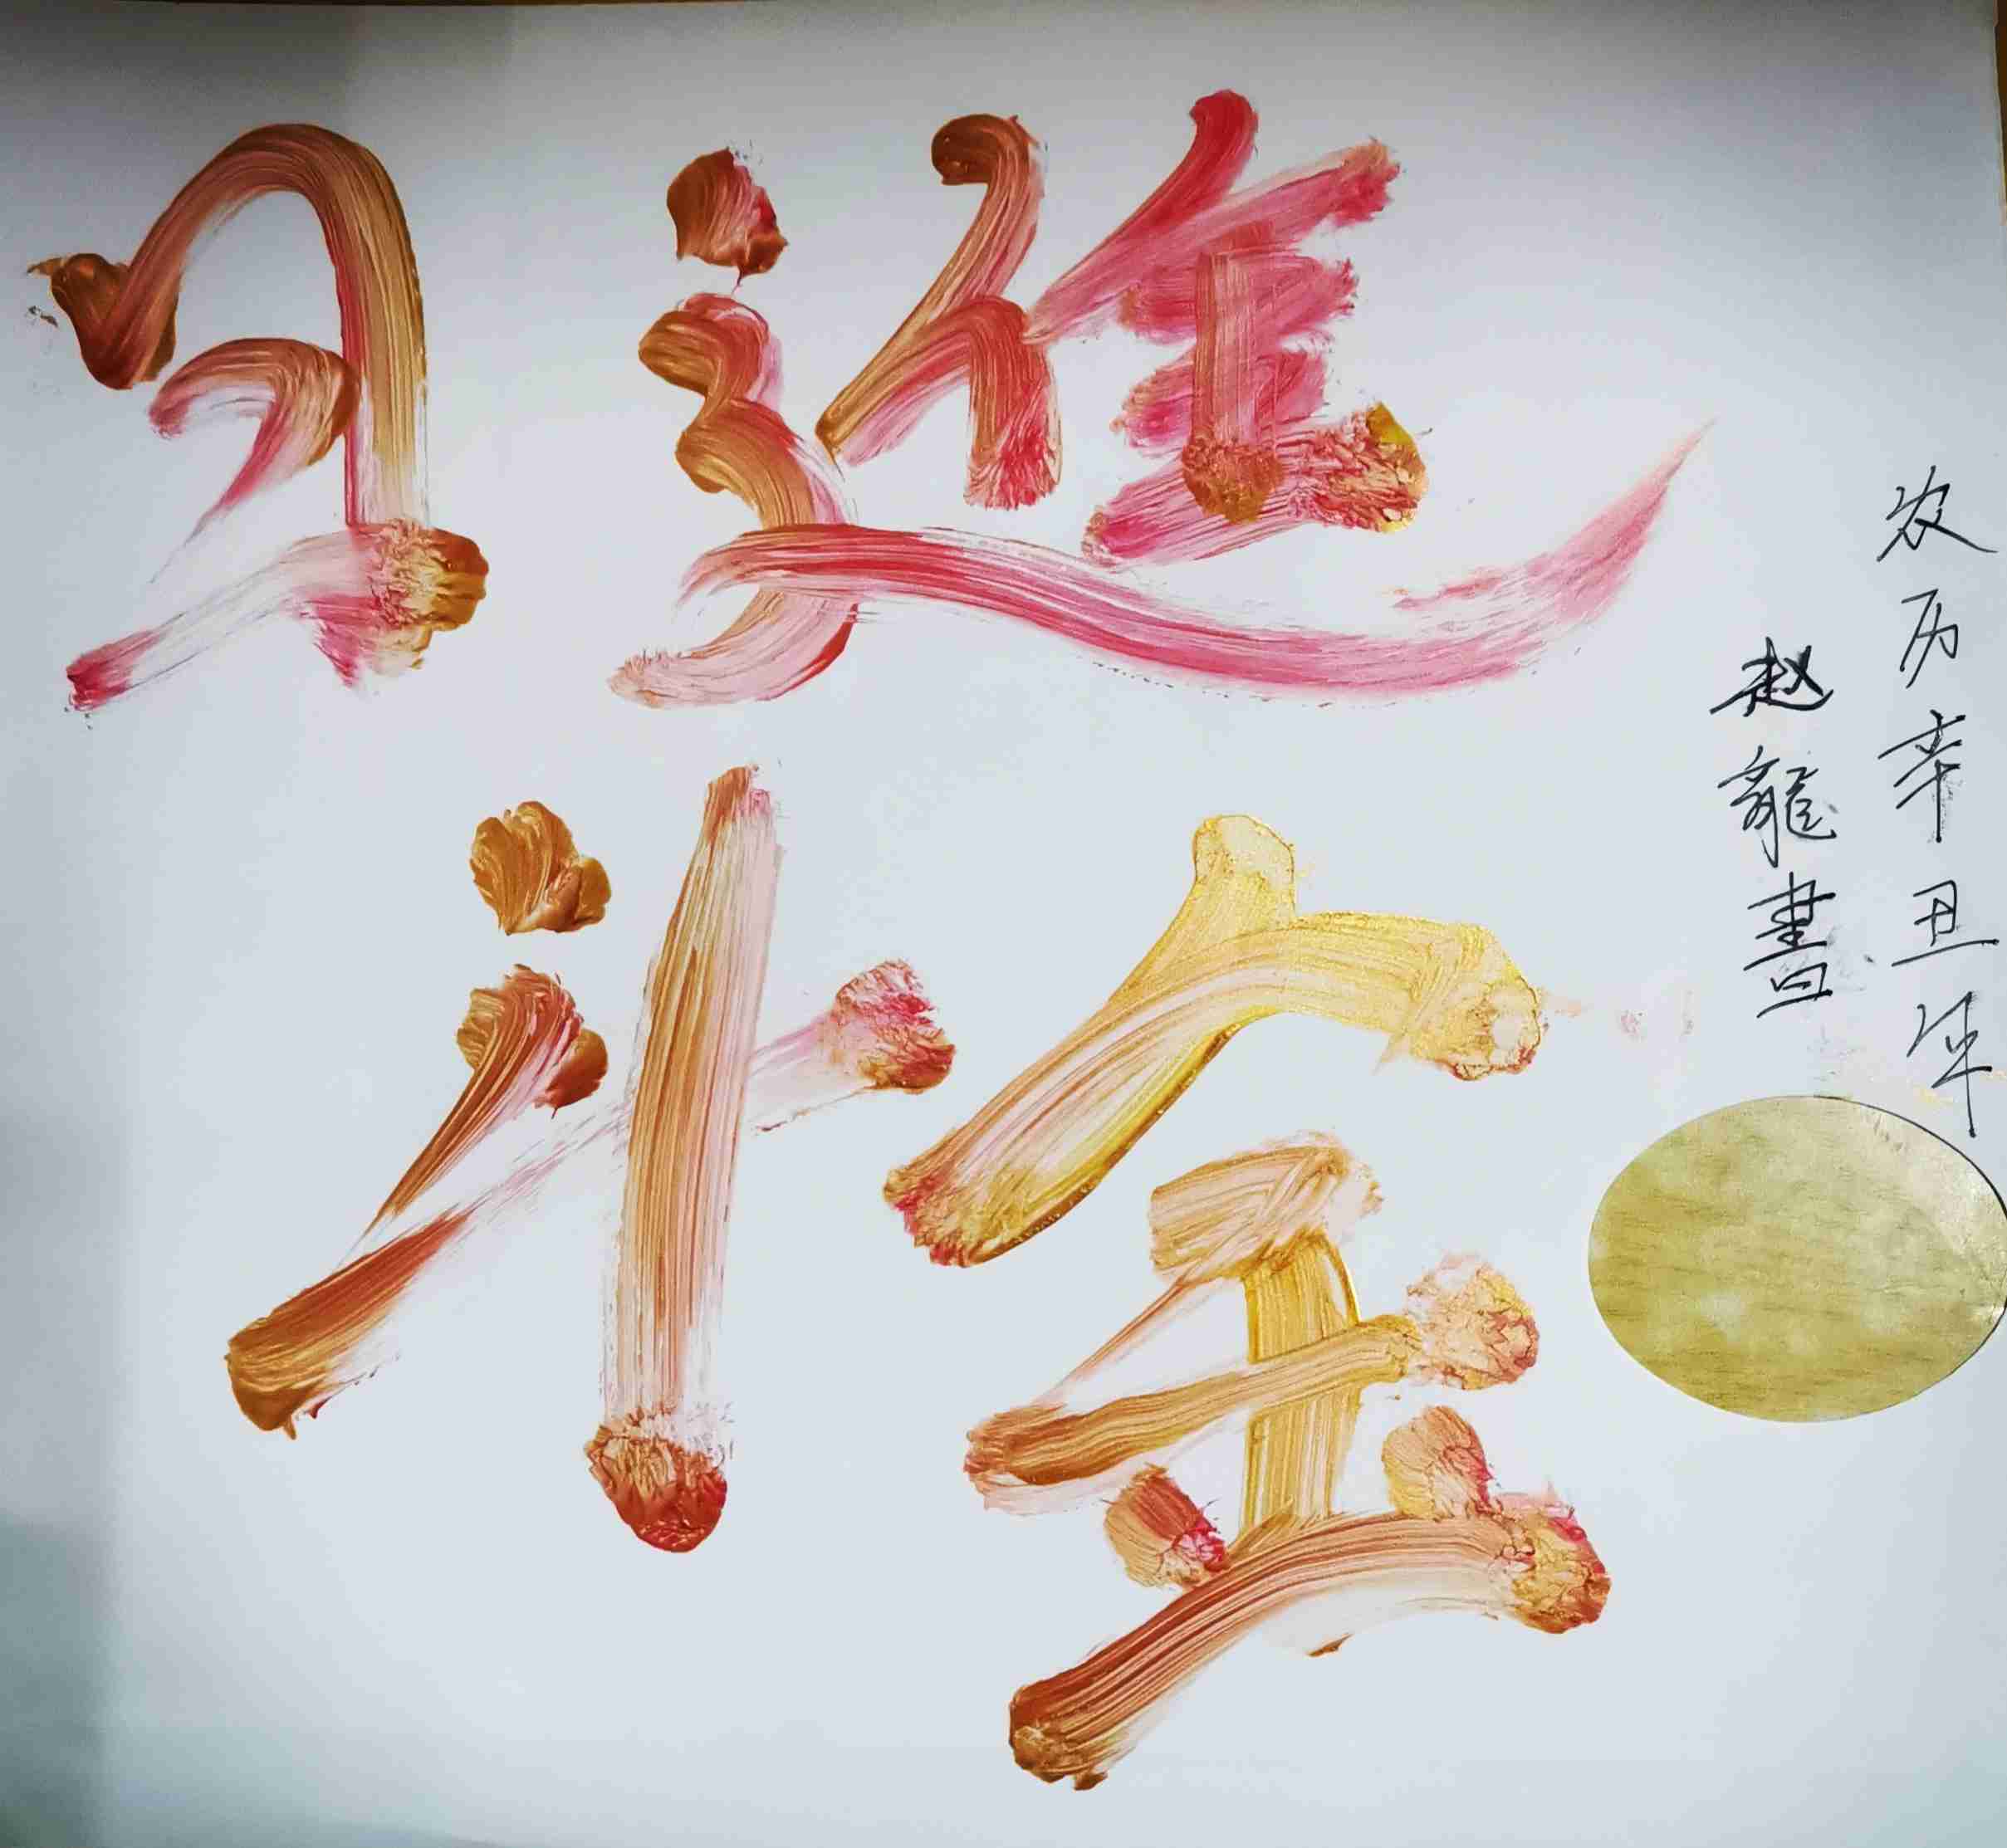 日進
斗金
农历辛丑年
赵龍書